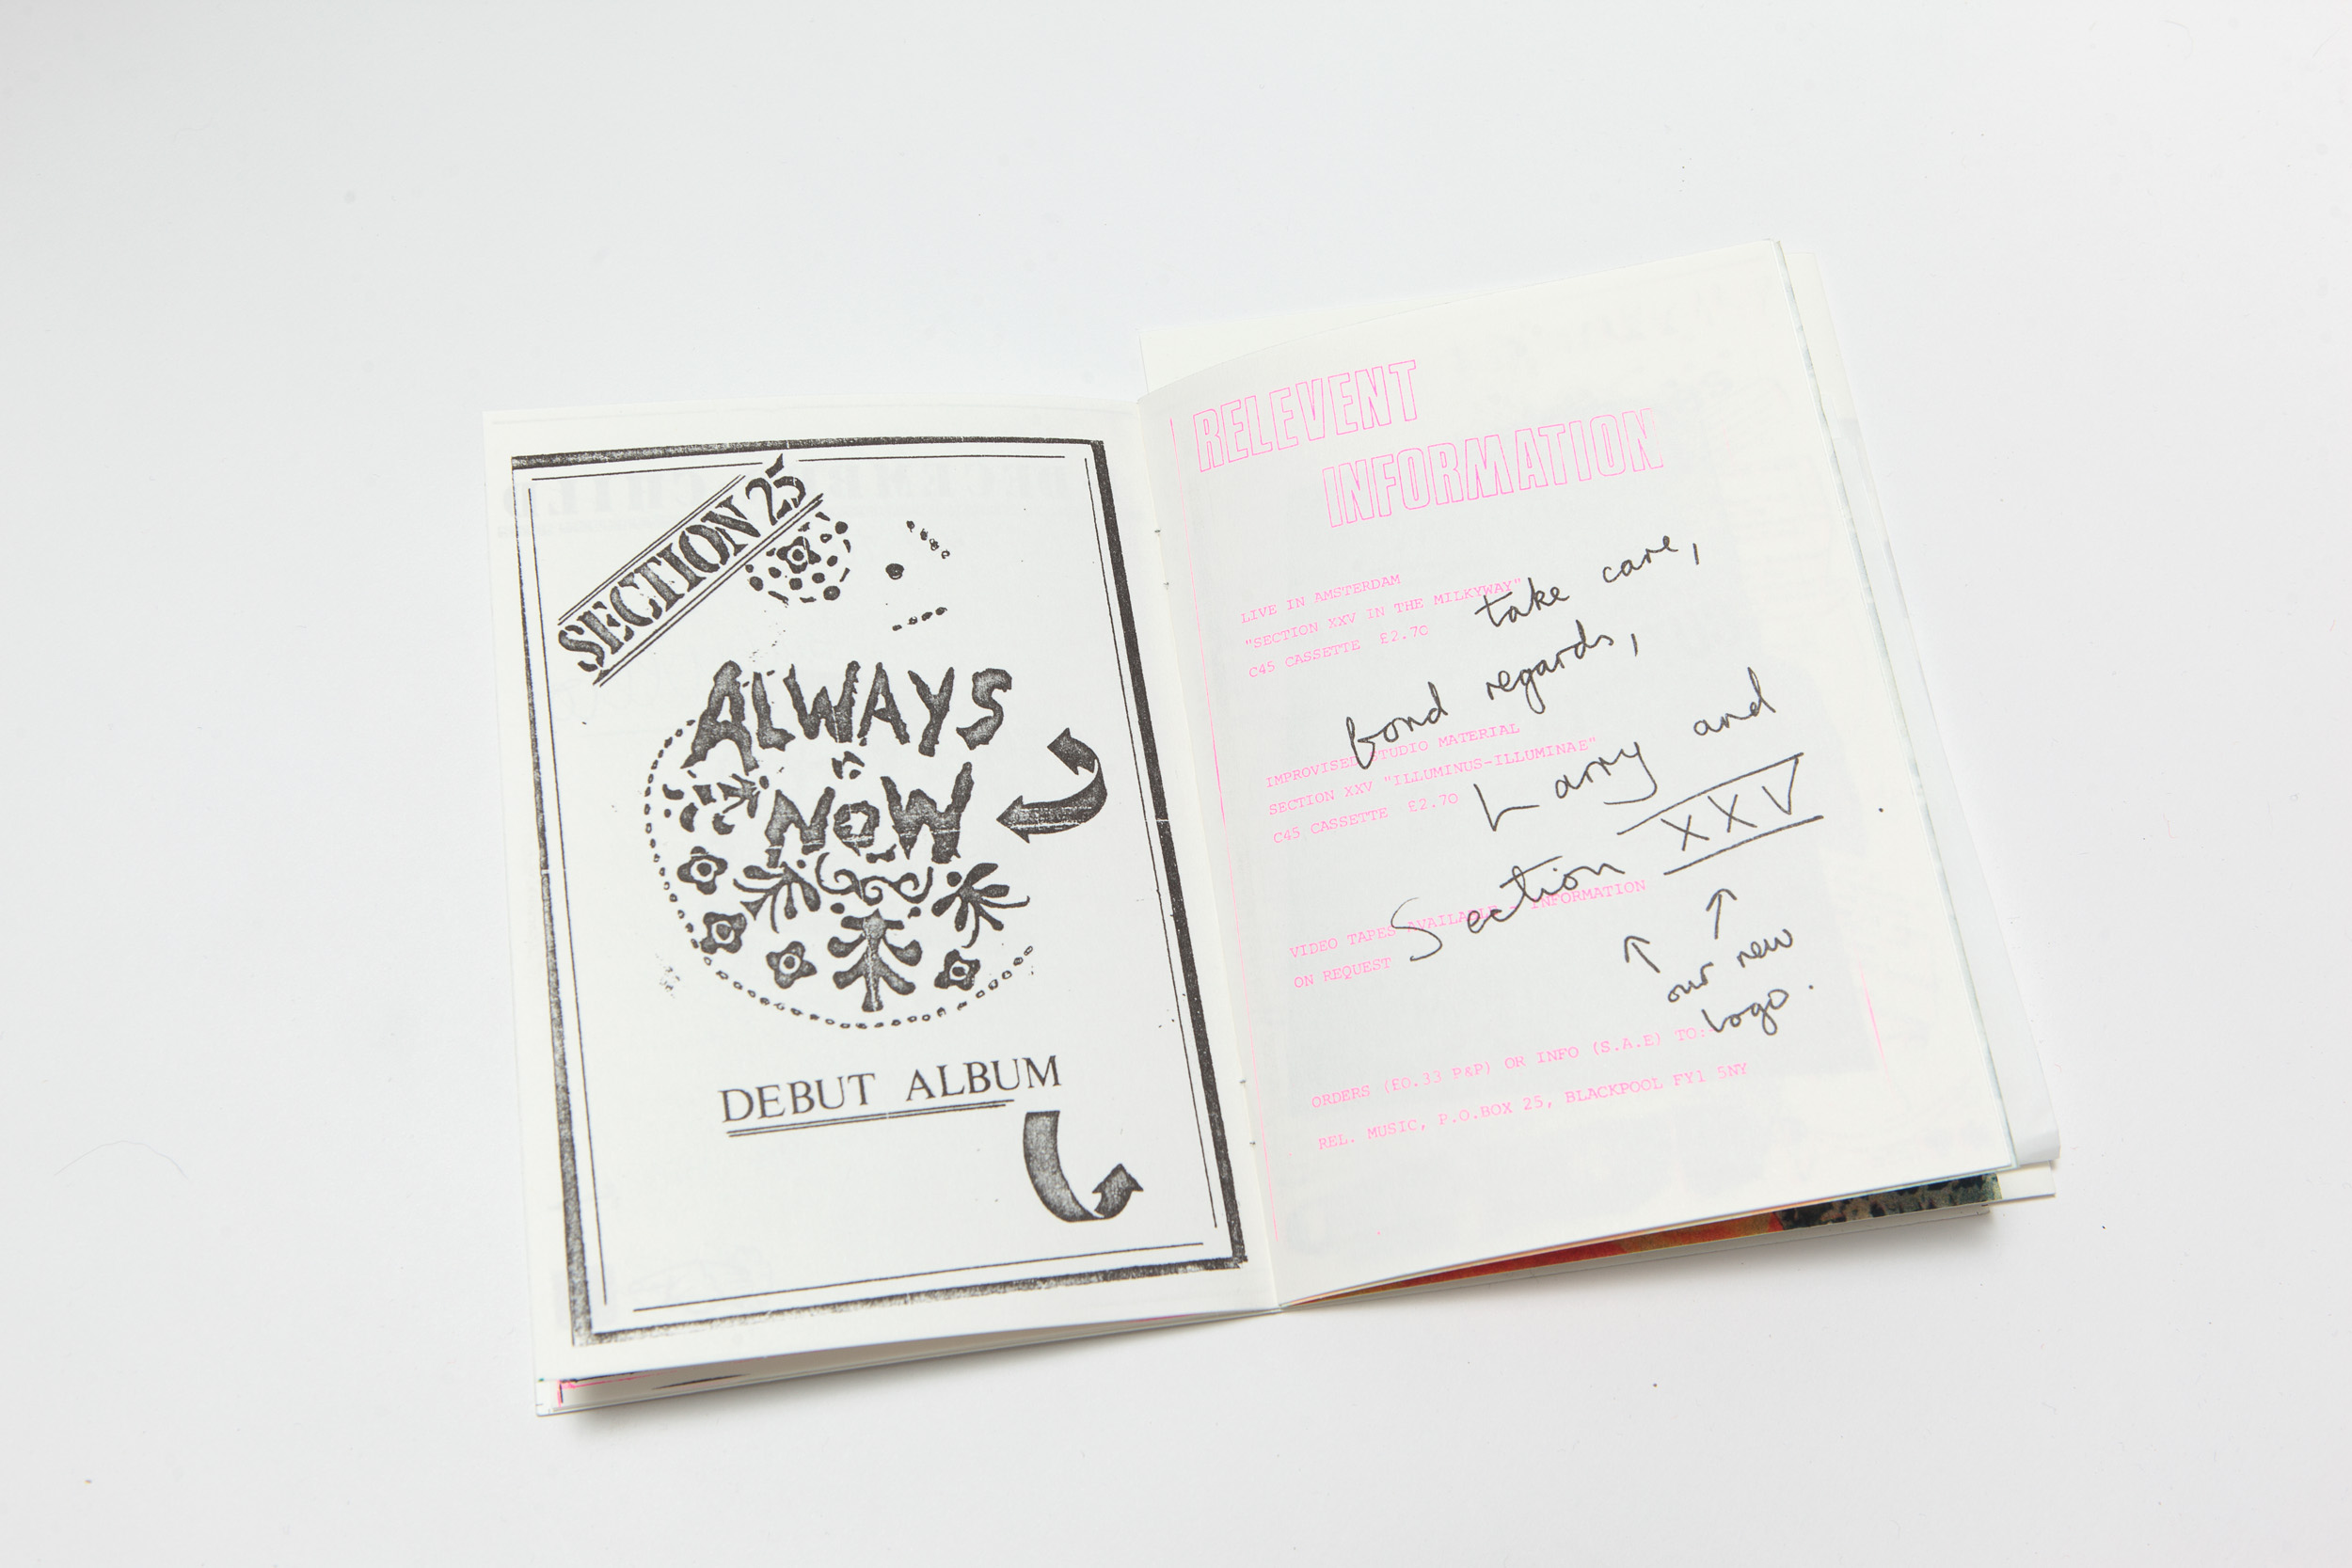 SECTION 25
ALWAYS
NOW
DEBUT ALBUM
RELEVENT
INFORMATION
LIVE IN AMSTERDAM
"SECTION XXV IN THE MILKYWAY"
C45 CASSETTE £2.70
IMPROVISED STUDIO MATERIAL
SECTION XXV "ILLUMINUS-ILLUMINAE"
C45 CASSETTE £2.70
VIDEO TAPES AVAILABLE - INFORMATION
ON REQUEST
ORDERS (£0.33 P&P) OR INFO (S.A.E) TO:
REL. MUSIC, P.O.BOX 25, BLACKPOOL FY1 5NY
take care,
bond regards,
Larry and
Section XXV
↑ ↑
our new
logo.